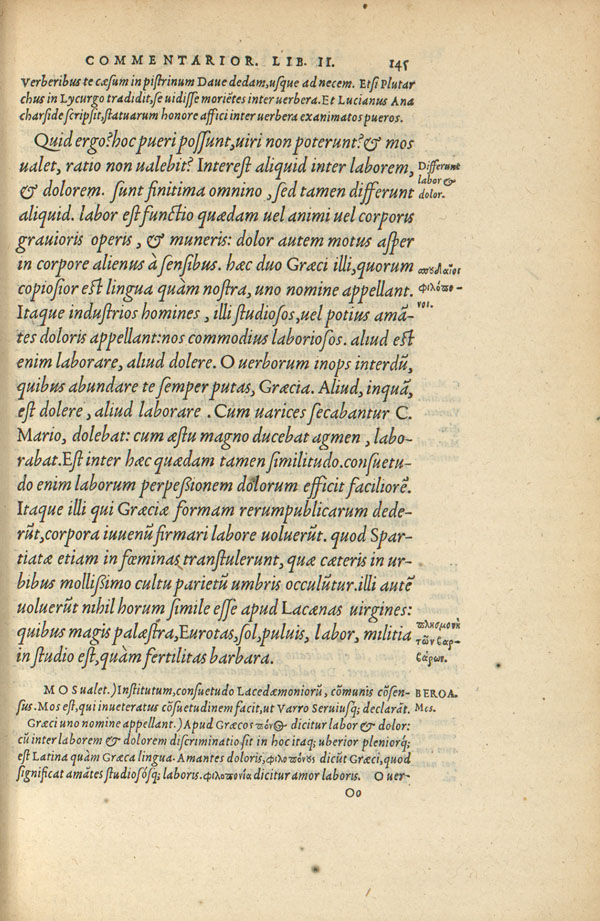 COMMENTARIOR. LIB. II. 145
Verberibus te cæsum in pistrinum Daue dedam, usque ad necem. Etsi Plutar
chus in Lycurgo tradidit, se uidisse moriẽtes inter uerbera. Et Lucianus Ana
charside scripsit, statuarum honore affici inter uerbera exanimatos pueros.
Quid ergo? hoc pueri possunt, uiri non poterunt? & mos
ualet, ratio non ualebit? Interest aliquid inter laborem,
& dolorem. sunt finitima omnino, sed tamen differunt
aliquid. labor est functio quædam uel animi uel corporis
grauioris operis, & muneris: dolor autem motus asper
in corpore alienus à sensibus. hæc duo Græci illi, quorum
copiosior est lingua quàm nostra, uno nomine appellant.
Itaque industrios homines, illi studiosos, uel potius amã-
tes doloris appellant: nos commodius laboriosos. aliud est
enim laborare, aliud dolere. O uerborum inops interdũ,
quibus abundare te semper putas, Græcia. Aliud, inquã,
est dolere, aliud laborare. Cum uarices secabantur C.
Mario, dolebat: cum æstu magno ducebat agmen, labo-
rabat. Est inter hæc quædam tamen similitudo. consuetu-
do enim laborum perpessionem dolorum efficit faciliorẽ.
Itaque illi qui Græciæ formam rerumpublicarum dede-
rũt, corpora iuuenũ firmari labore uoluerũt. quod Spar-
tiatæ etiam in fœminas transtulerunt, quæ cæteris in ur-
bibus mollissimo cultu parietũ umbris occulũtur. illi autẽ
uoluerũt nihil horum simile esse apud Lacænas uirgines:
quibus magis palæstra, Eurotas, sol, puluis, labor, militia
in studio est, quàm fertilitas barbara.
Differunt
labor &
dolor.
σπουδαῖοι
φιλόπο-
νοι.
πλησμονὴ
τῶν βαρ-
βάρων.
MOS ualet.) Institutum, consuetudo Lacedæmoniorũ, cõmunis cõsen-
sus. Mos est, qui inueteratus cõsuetudinem facit, ut Varro Seruiusq; declarãt.
Græci uno nomine appellant.) Apud Græcos πόνος dicitur labor & dolor:
cũ inter laborem & dolorem discriminatio sit in hoc itaq; uberior pleniorq;
est Latina quàm Græca lingua. Amantes doloris, φιλοπόνους dicũt Græci, quod
significat amãtes studiosósq; laboris. φιλοπονία dicitur amor laboris. O uer-
BEROA.
Mos.
Oo